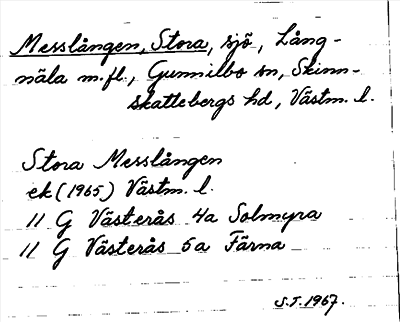 Messlången, Stora, sjö, Lång-
näla m.fl., Gunnilbo sn, Skinn-
skattebergs hd, Västm. l.
Stora Messlången
ek (1965) Västm. l.
11 G Västerås 4a Solmyra
11 G Västerås 5a Färna
S.T. 1967.